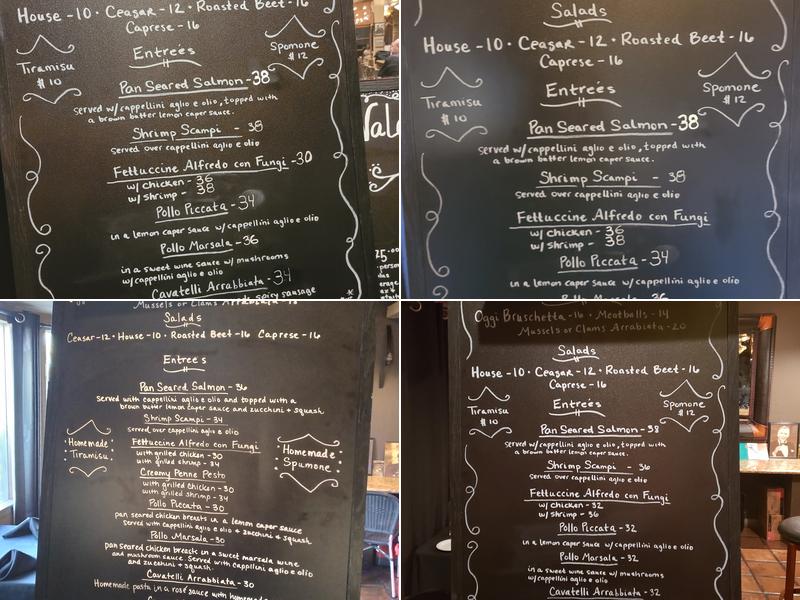 House -10 · Ceasar -12 · Roasted Beet -16
Caprese -16
Entreés
Tiramisu
$10
Spomone
$12
Pan Seared Salmon -38
served w/cappellini aglio e olio, topped with
a brown butter lemon caper sauce.
Shrimp Scampi - 38
served over cappellini aglio e olio
Fettuccine Alfredo con Fungi -30
w/ chicken - 36
w/ shrimp - 38
Pollo Piccata - 34
in a lemon caper sauce w/cappellini aglio e olio
Pollo Marsala - 36
in a sweet wine sauce w/ mushrooms
w/cappellini aglio e olio
Cavatelli Arrabbiata - 34
spicy sausage
Salads
House -10 · Ceasar -12 · Roasted Beet -16
Caprese -16
Entreés
Tiramisu
$10
Spomone
$12
Pan Seared Salmon -38
served w/cappellini aglio e olio, topped with
a brown butter lemon caper sauce.
Shrimp Scampi - 38
served over cappellini aglio e olio
Fettuccine Alfredo con Fungi
w/ chicken - 36
w/ shrimp - 38
Pollo Piccata - 34
in a lemon caper sauce w/cappellini aglio e olio
Pollo Marsala - 36
Mussels or Clams Arrabiata
Salads
Ceasar -12 · House -10 · Roasted Beet -16 Caprese -16
Entree's
Pan Seared Salmon -36
Served with cappellini aglio e olio and topped with a
brown butter lemon caper sauce and zucchini + squash
Shrimp Scampi - 34
served over cappellini aglio e olio
Fettuccine Alfredo con Fungi
with grilled chicken - 30
with grilled shrimp - 34
Homemade
Tiramisu
Homemade
Spumone
Creamy Penne Pesto
with grilled chicken - 30
with grilled shrimp - 34
Pollo Piccata - 30
pan seared chicken breasts in a lemon caper sauce
served with cappellini aglio e olio + zucchini + squash
Pollo Marsala - 30
pan seared chicken breasts in a sweet marsala wine
and mushroom sauce. Served with cappellini aglio e olio
and zucchini + squash
Cavatelli Arrabbiata - 30
Homemade pasta in a rosé sauce with homemade
Oggi Bruschetta -16 · Meatballs - 14
Mussels or Clams Arrabiata - 20
Salads
House -10 · Ceasar -12 · Roasted Beet -16
Caprese -16
Entreés
Tiramisu
$10
Spomone
$12
Pan Seared Salmon -38
served w/cappellini aglio e olio, topped with
a brown butter lemon caper sauce.
Shrimp Scampi - 36
served over cappellini aglio e olio
Fettuccine Alfredo con Fungi
w/ chicken - 32
w/ shrimp - 36
Pollo Piccata - 32
in a lemon caper sauce w/cappellini aglio e olio
Pollo Marsala - 32
in a sweet wine sauce w/ mushrooms
w/cappellini aglio e olio
Cavatelli Arrabbiata - 32